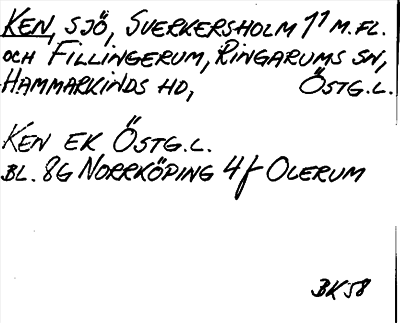 KEN, SJÖ, SVERKERSHOLM 1¹ M.FL.
OCH FILLINGERUM, RINGARUMS SN,
HAMMARKINDS HD, ÖSTG.L.
KEN EK ÖSTG.L.
BL. 8G NORRKÖPING 4f OLERUM
BK58